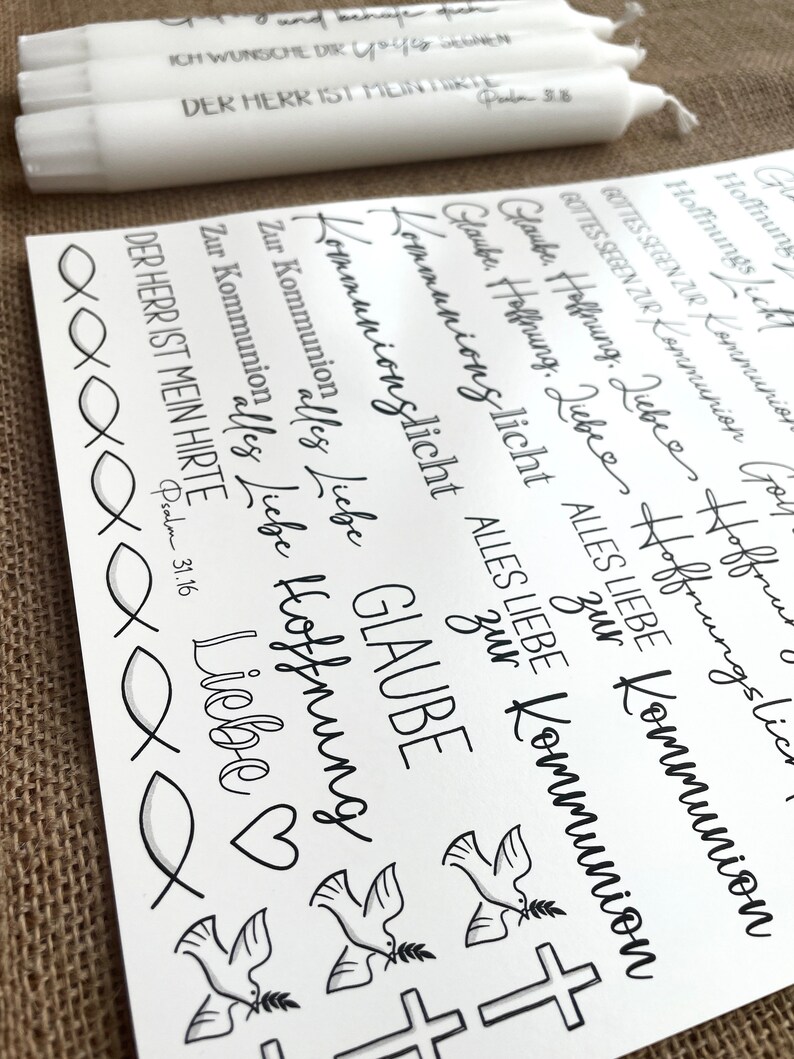 und behüte dich
ICH WÜNSCHE DIR Gottes SEGNEN
DER HERR IST MEIN HIRTE
Psalm 31.16
DER HERR IST MEIN HIRTE
Psalm 31.16
Zur Kommunion
alles Liebe
Zur Kommunion
alles Liebe
Liebe
Hoffnung
GLAUBE
Kommunionslicht
Kommunionslicht
Glaube, Hoffnung, Liebe
Glaube, Hoffnung, Liebe
ALLES LIEBE
zur
Kommunion
ALLES LIEBE
zur
Kommunion
GOTTES SEGEN ZUR
Kommunion
GOTTES SEGEN ZUR
Kommunion
Hoffnungslicht
Hoffnungs
Licht
Hoffnungs